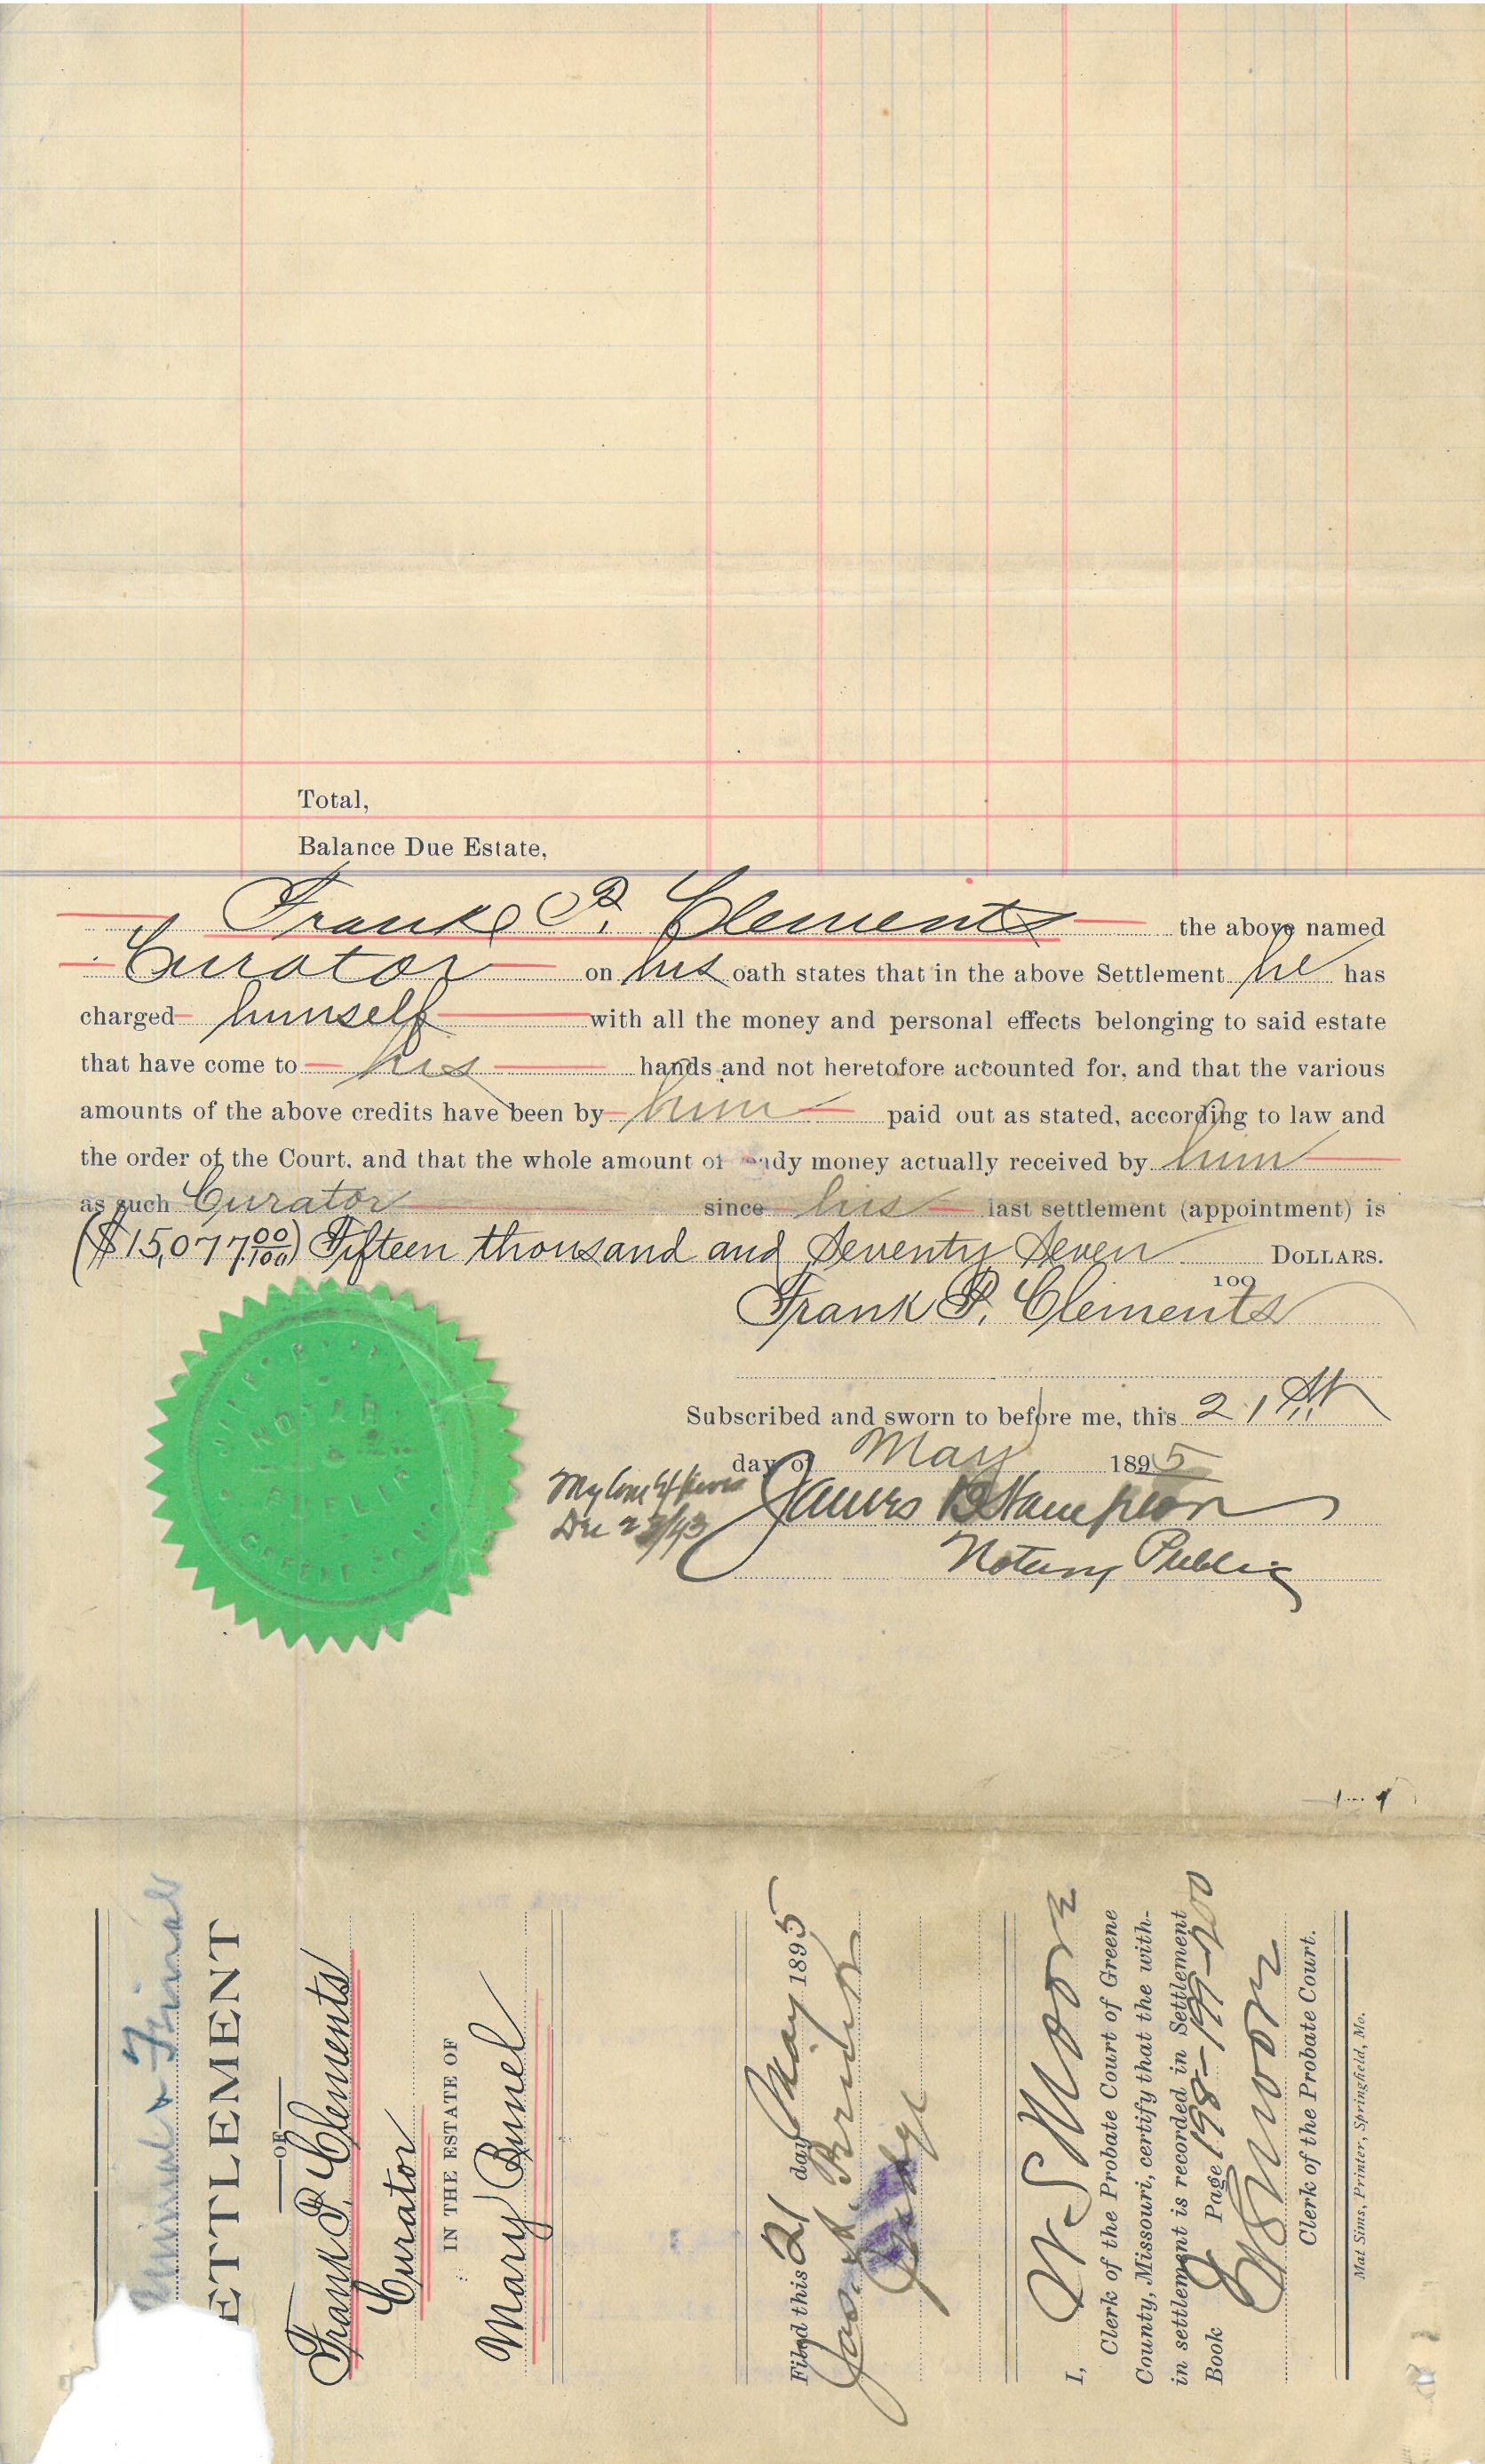 Total,
Balance Due Estate,
Frank P. Clements the above named
Curator on his oath states that in the above Settlement he has
charged himself with all the money and personal effects belonging to said estate
that have come to his hands and not heretofore accounted for, and that the various
amounts of the above credits have been by him paid out as stated, according to law and
the order of the Court, and that the whole amount of ady money actually received by him
as such Curator since his last settlement (appointment) is
($15,077 00/100) Fifteen thousand and Seventy Seven DOLLARS.
100
Frank P. Clements
Subscribed and sworn to before me, this 21st
day of May 1895
My Com Expires
Dec
James
Notary Public
NOTAR
PUBLIC
GREENE CO
Annual & Final
ETTLEMENT
OF
Frank P. Clements
Curator
IN THE ESTATE OF
Mary Bunel
Filed this 21 day May 1895
Jas.
Judge
I, W S Moore
Clerk of the Probate Court of Greene
County, Missouri, certify that the with-
in settlement is recorded in Settlement
Book Q Page 198-199-200
W S Moore
Clerk of the Probate Court.
Mat Sims, Printer, Springfield, Mo.